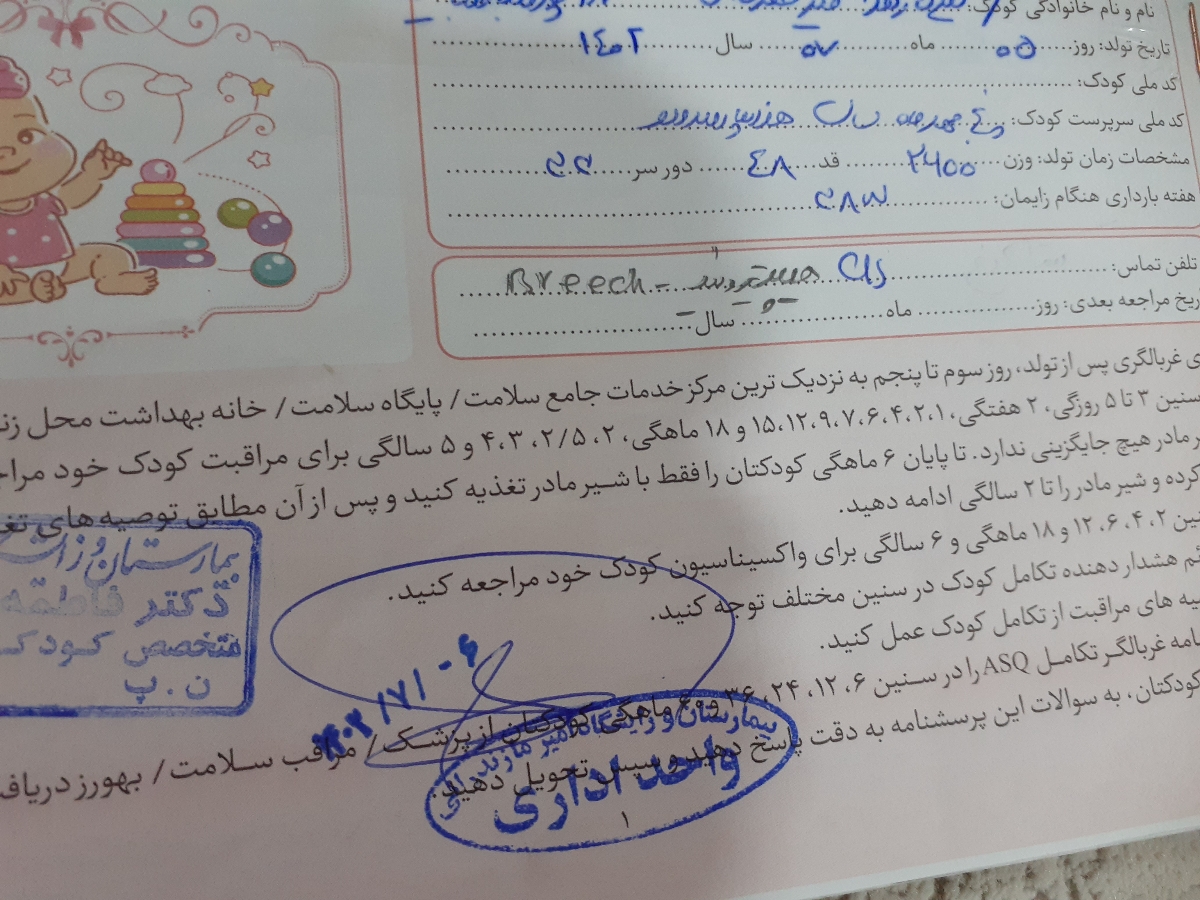 نام و نام خانوادگی کودک:
تاریخ تولد: روز ۰۵ ماه ۰۷ سال ۱۴۰۲
کد ملی کودک:
کد ملی سرپرست کودک:
مشخصات زمان تولد: وزن ۲۴۰۰ قد ۴۸ دور سر
هفته بارداری هنگام زایمان:
تلفن تماس: C/S Breech
ریخ مراجعه بعدی: روز ماه سال
ی غربالگری پس از تولد، روز سوم تا پنجم به نزدیک ترین مرکز خدمات جامع سلامت/ پایگاه سلامت/ خانه بهداشت محل زند
سنین ۳ تا ۵ روزگی، ۲ هفتگی، ۱، ۲، ۴، ۶، ۷، ۹، ۱۲، ۱۵ و ۱۸ ماهگی، ۲، ۲/۵، ۳، ۴ و ۵ سالگی برای مراقبت کودک خود مراج
ر مادر هیچ جایگزینی ندارد. تا پایان ۶ ماهگی کودکتان را فقط با شیر مادر تغذیه کنید و پس از آن مطابق توصیه های تغ
کرده و شیر مادر را تا ۲ سالگی ادامه دهید.
ین ۲، ۴، ۶، ۱۲ و ۱۸ ماهگی و ۶ سالگی برای واکسیناسیون کودک خود مراجعه کنید.
ئم هشدار دهنده تکامل کودک در سنین مختلف توجه کنید.
یه های مراقبت از تکامل کودک عمل کنید.
امه غربالگر تکامل ASQ را در سنین ۶، ۱۲، ۲۴، ۳۶ و ۶۰ ماهگی کودکتان از پزشک/ مراقب سلامت/ بهورز دریاف
کودکتان، به سوالات این پرسشنامه به دقت پاسخ دهید و سپس تحویل دهید.
۱
بیمارستان و زای
دکتر فاطمه
متخصص کودک
ن . پ
بیمارستان و زایشگاه امیر مازندرانی
واحد اداری